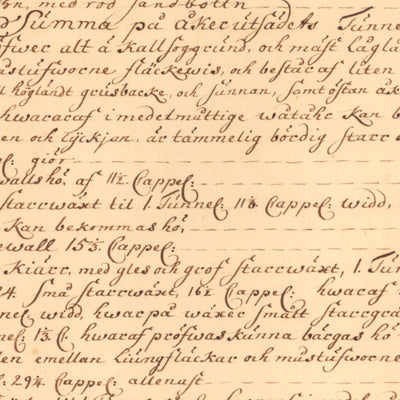 ön, med röd sandbottn
Summa på åkerutsädets Tunne
öfwer alt å Kallsoggrund, och mäst låglän
mustufworne fläckewis, och bestar af liten
til höglandt grusbacke, och sunnan, samt östan åk
hwararaf i medelmåttige wåtåhr kan b
en och Lyckjan, är tämmelig bördig Starr o
el: giör
wallshö, af 11½ Cappel:
starrwäxt til 1. Tunnel: 11⅛ Cappel: widd,
Kan bekommas hö,
ewall 15⅔ Cappel:
Kiärr, med gles och grof starrwäxt, 1. Tun
24 små starrwäxt, 16½ Cappel: hwaraf
nel widd, hwarpå wäxer smått starrgrä
nel: 13. C. hwaraf pröfwas kunna bärgas hö
en emellan Liungfläckar och mustufworne
l: 29¼ Cappel: allenast